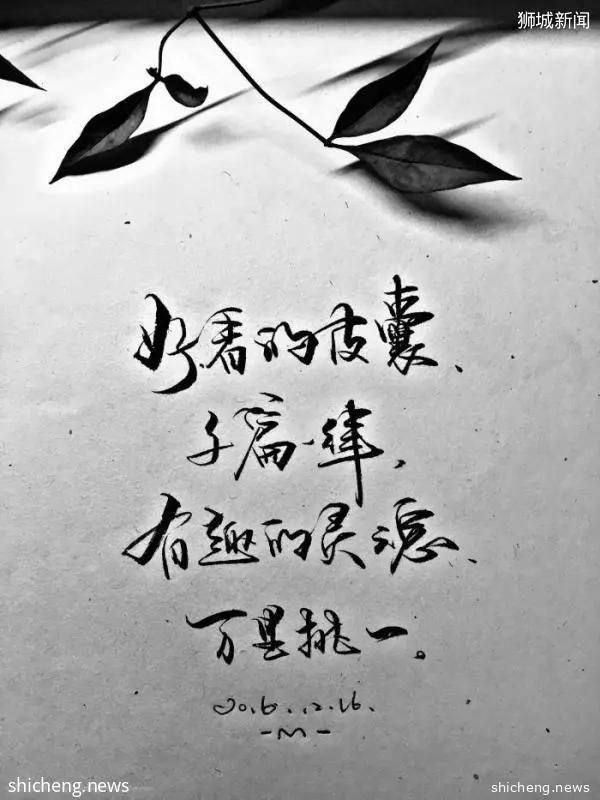 狮城新闻
好看的皮囊、
千篇一律，
有趣的灵魂、
万里挑一。
2016.12.16.
-M-
shicheng.news
shicheng.news